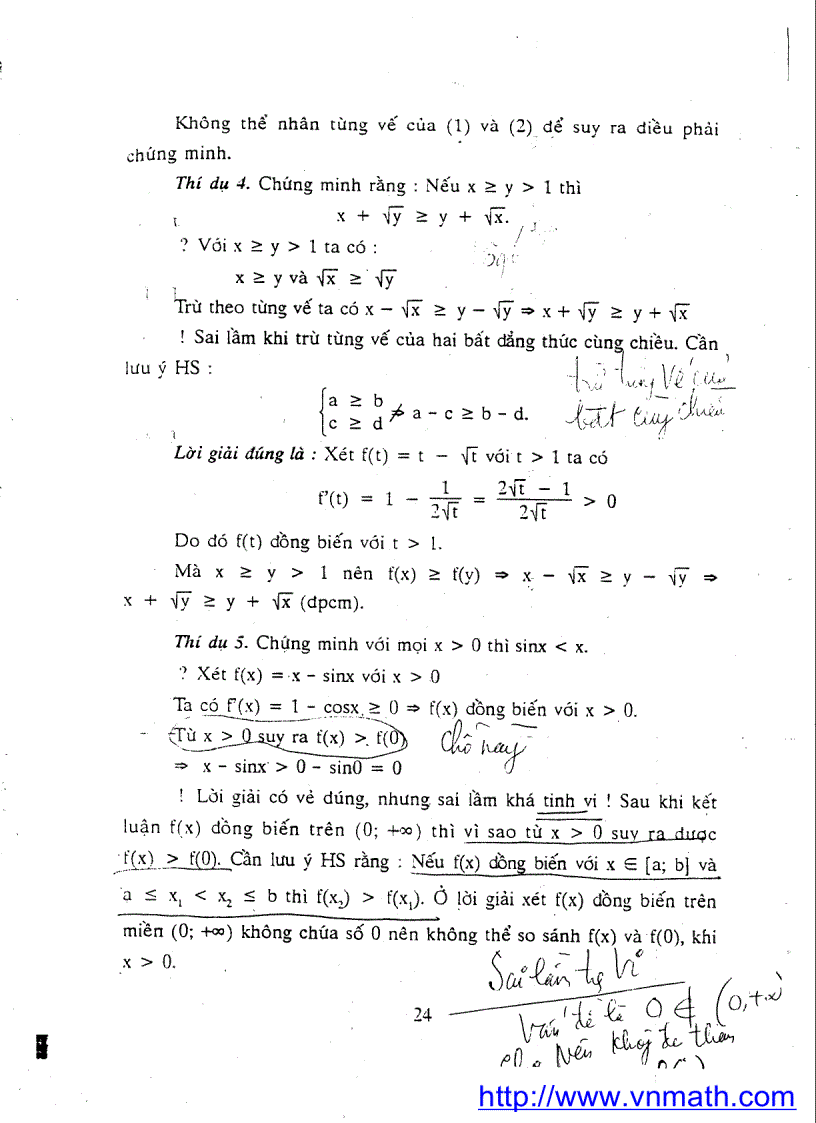 Không thể nhân từng vế của (1) và (2) để suy ra điều phải
chứng minh.
Thí dụ 4. Chứng minh rằng : Nếu x ≥ y > 1 thì
x + √y ≥ y + √x.
? Với x ≥ y > 1 ta có :
x ≥ y và √x ≥ √y
Trừ theo từng vế ta có x − √x ≥ y − √y ⇒ x + √y ≥ y + √x
! Sai lầm khi trừ từng vế của hai bất đẳng thức cùng chiều. Cần
lưu ý HS :
trừ từng vế của
bđt cùng chiều
{a ≥ b
c ≥ d ⇏ a - c ≥ b - d.
Lời giải đúng là : Xét f(t) = t − √t với t > 1 ta có
f'(t) = 1 − 1/(2√t) = (2√t − 1)/(2√t) > 0
Do đó f(t) đồng biến với t > 1.
Mà x ≥ y > 1 nên f(x) ≥ f(y) ⇒ x − √x ≥ y − √y ⇒
x + √y ≥ y + √x (đpcm).
Thí dụ 5. Chứng minh với mọi x > 0 thì sinx < x.
? Xét f(x) = x − sinx với x > 0
Ta có f'(x) = 1 − cosx ≥ 0 ⇒ f(x) đồng biến với x > 0.
Từ x > 0 suy ra f(x) > f(0) Chỗ này
⇒ x − sinx > 0 − sin0 = 0
! Lời giải có vẻ đúng, nhưng sai lầm khá tinh vi ! Sau khi kết
luận f(x) đồng biến trên (0; +∞) thì vì sao từ x > 0 suy ra được
f(x) > f(0). Cần lưu ý HS rằng : Nếu f(x) đồng biến với x ∈ [a; b] và
a ≤ x₁ < x₂ ≤ b thì f(x₂) > f(x₁). Ở lời giải xét f(x) đồng biến trên
miền (0; +∞) không chứa số 0 nên không thể so sánh f(x) và f(0), khi
x > 0.
Sai lầm
24
Vấn đề là 0 ∉ (0,+∞)
Nên
http://www.vnmath.com